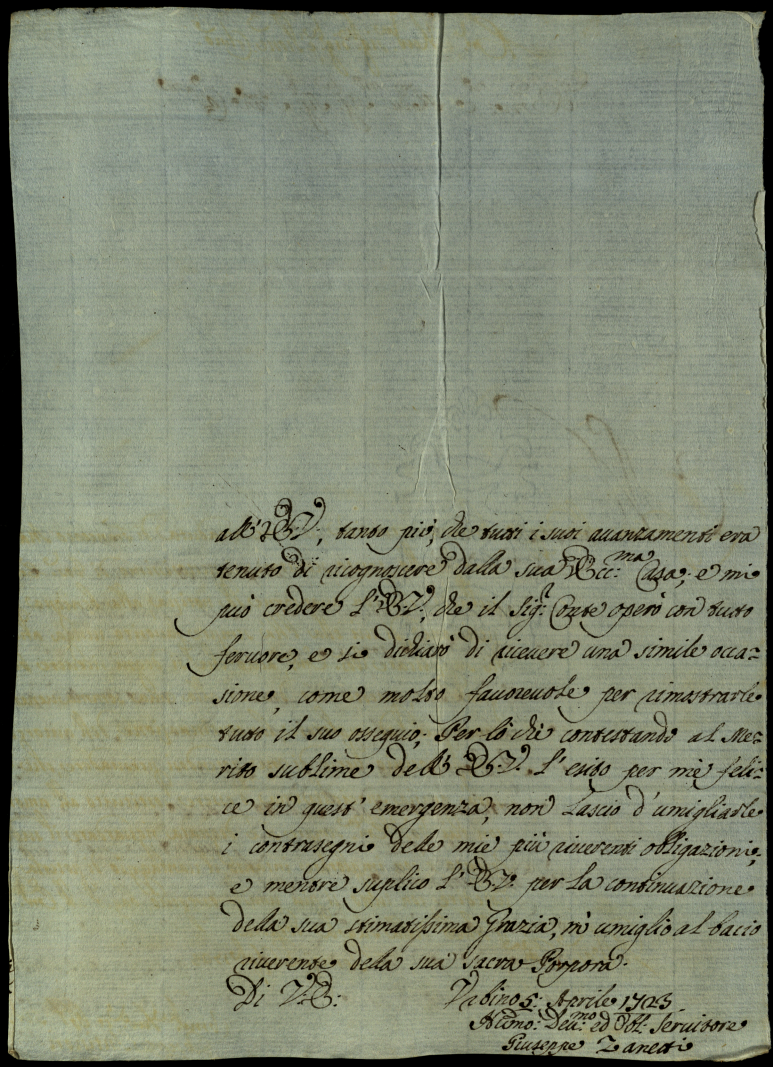 all' E.V., tanto più, che tutti i suoi auanzamenti era
tenuto di ricognoscere dalla sua Ecc.ma Casa; e mi
può credere l'E.V., che il Sig.r Conte operò con tutto
feruore, e si dichiarò di riceuere una simile occa=
sione, come molto fauoreuole per rimostrarle
tutto il suo ossequio. Per lo che contestando al Me=
rito sublime dell' E.V. l'esito per me feli=
ce in quest' emergenza, non lascio d'umigliarle
i contrasegni dele mie più riuerenti obligazioni,
e mentre suplico l'E.V. per la continuazione
della sua stimatissima Grazia, m'umiglio al bacio
riuerente della sua sacra Porpora.
Di V.E. 5: Aprile 1723
Deu.mo ed Obl. Seruitore
Giuseppe Zanetti